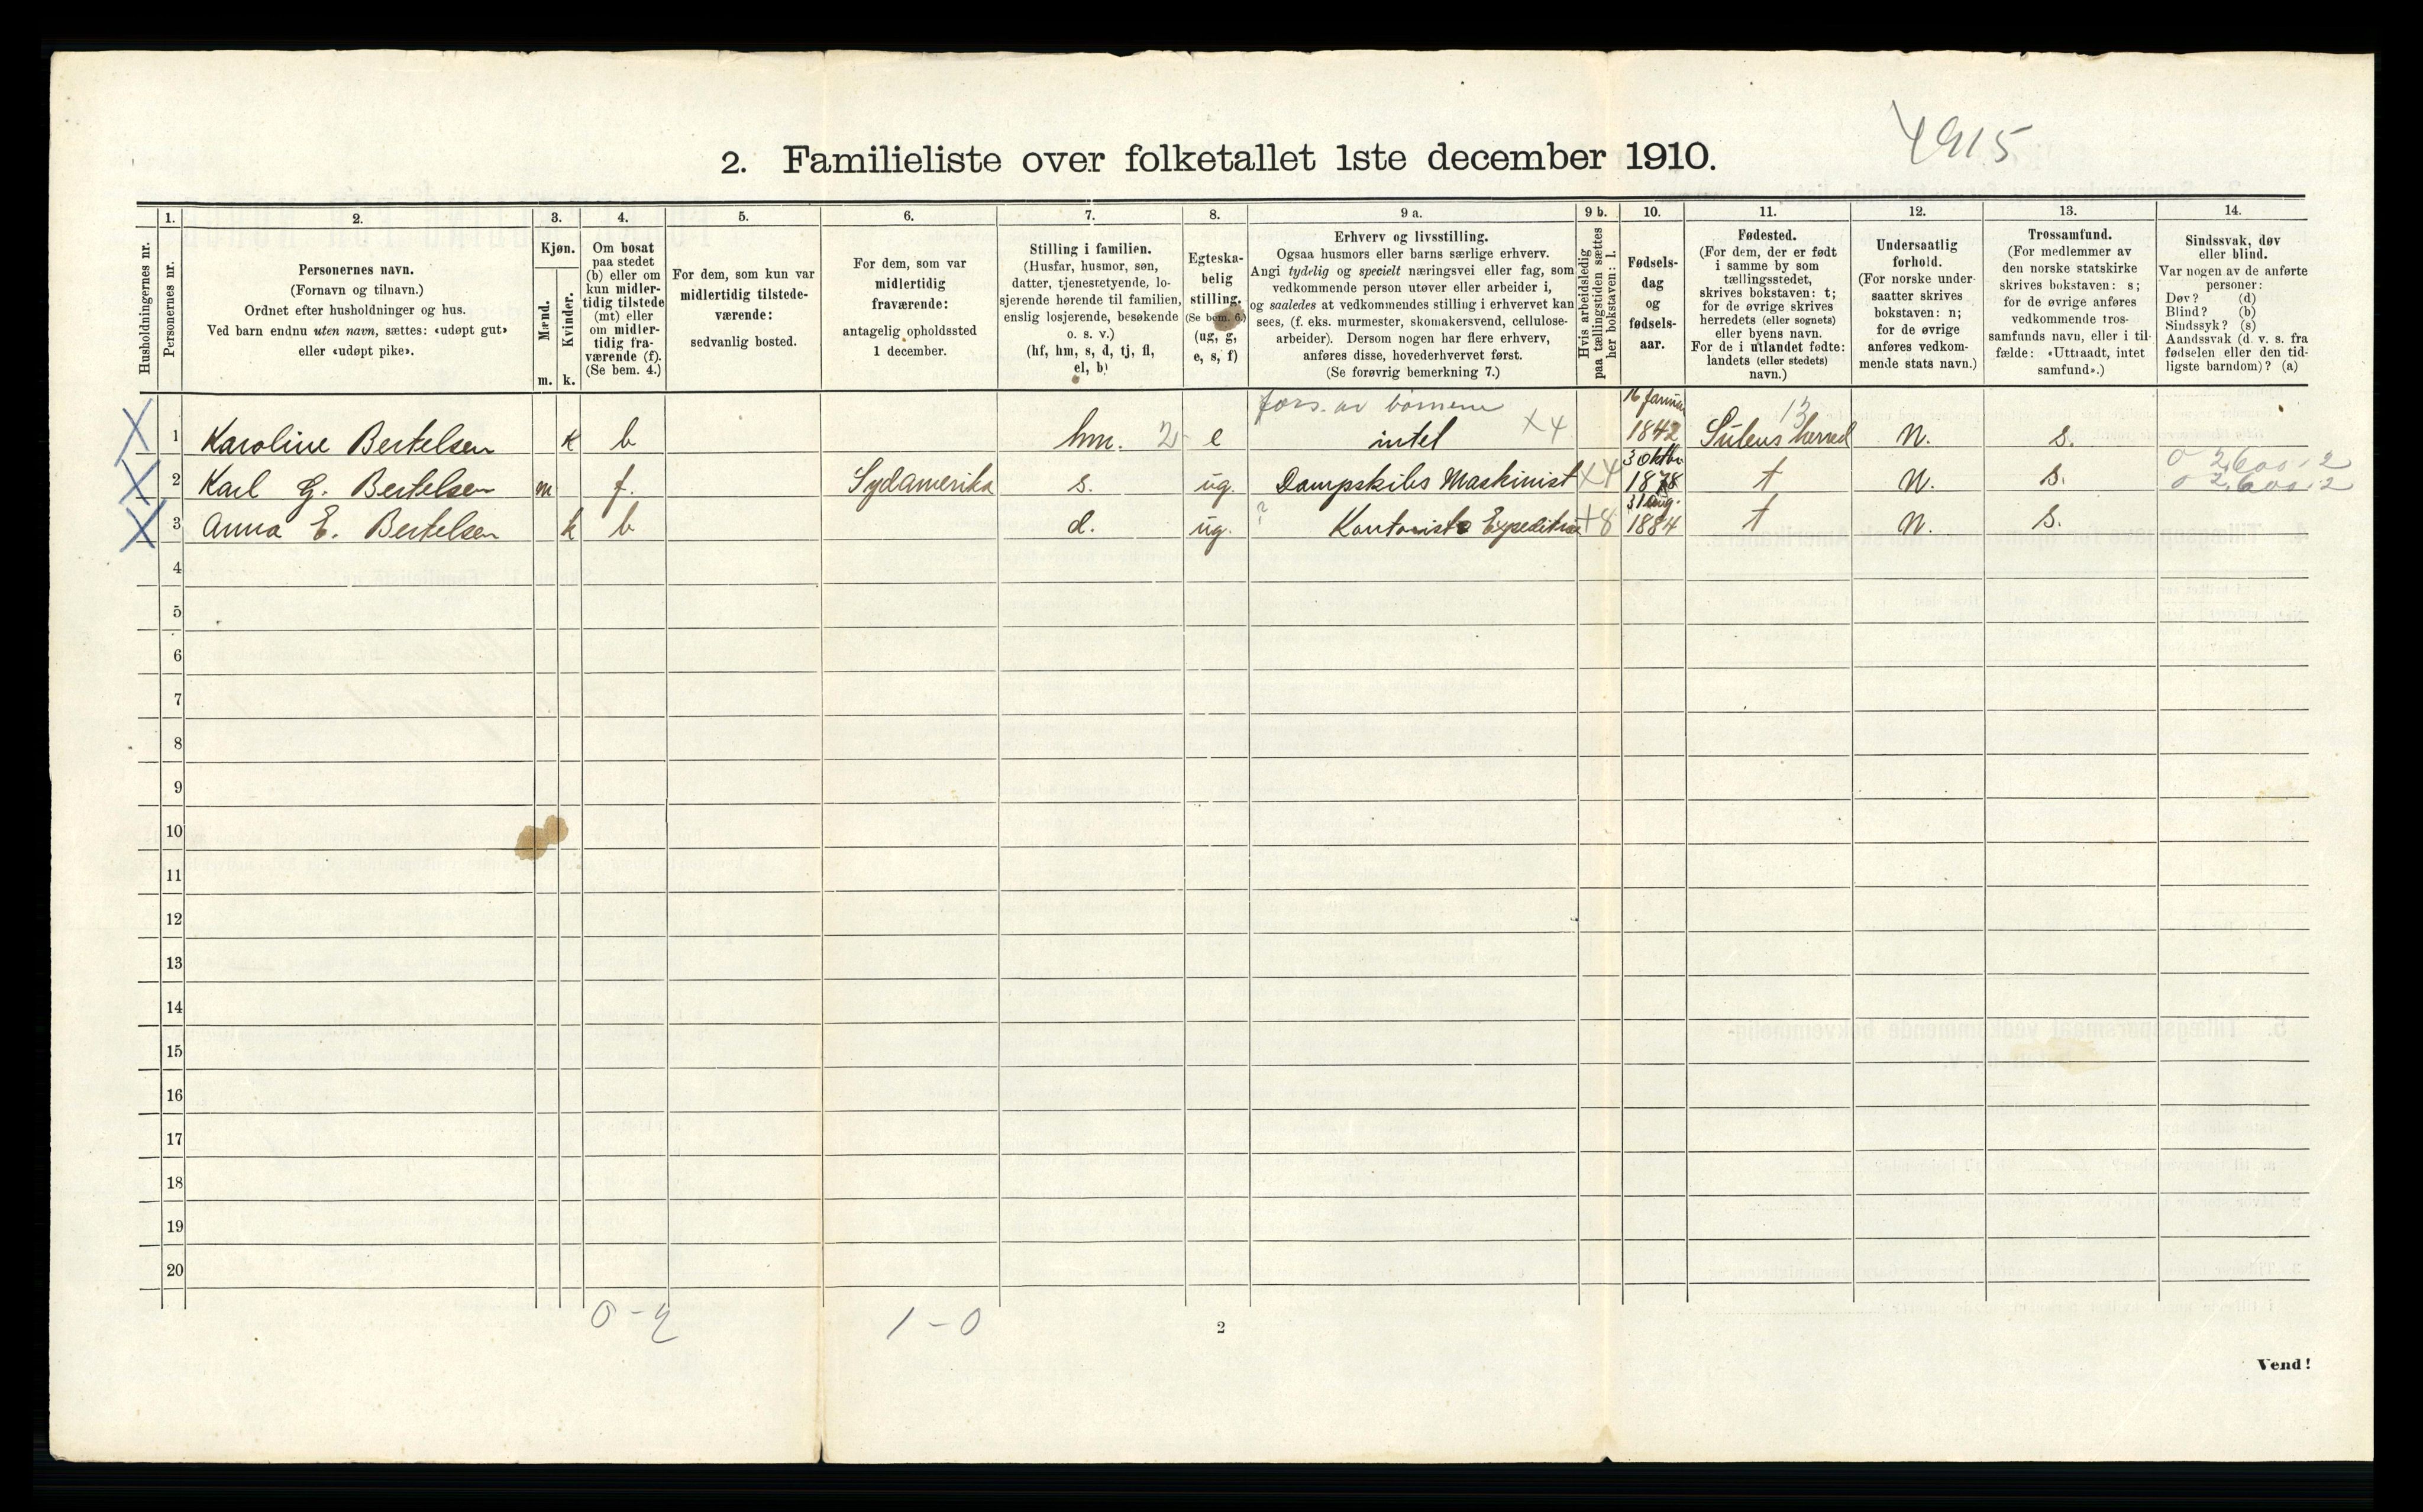 4915
2. Familieliste over folketallet 1ste december 1910.
Husholdningernes nr.
1.
Personernes nr.
2.
Personernes navn.
(Fornavn og tilnavn.)
Ordnet efter husholdninger og hus.
Ved barn endnu uten navn, sættes: «udøpt gut»
eller «udøpt pike».
3.
Kjøn.
Mænd.
m.
Kvinder.
k.
4.
Om bosat
paa stedet
(b) eller om
kun midler-
tidig tilstede
(mt) eller
om midler-
tidig fra-
værende (f).
(Se bem. 4.)
5.
For dem, som kun var
midlertidig tilstede-
værende:
sedvanlig bosted.
6.
For dem, som var
midlertidig
fraværende:
antagelig opholdssted
1 december.
7.
Stilling i familien.
(Husfar, husmor, søn,
datter, tjenestetyende, lo-
sjerende hørende til familien,
enslig losjerende, besøkende
o. s. v.)
(hf, hm, s, d, tj, fl,
el, b)
8.
Egteska-
belig
stilling.
(Se bem. 6.)
(ug, g,
e, s, f)
9 a.
Erhverv og livsstilling.
Ogsaa husmors eller barns særlige erhverv.
Angi tydelig og specielt næringsvei eller fag, som
vedkommende person utøver eller arbeider i,
og saaledes at vedkommendes stilling i erhvervet kan
sees, (f. eks. murmester, skomakersvend, cellulose-
arbeider). Dersom nogen har flere erhverv,
anføres disse, hovederhvervet først.
(Se forøvrig bemerkning 7.)
9 b.
Hvis arbeidsledig
paa tællingstiden sættes
her bokstaven: l.
10.
Fødsels-
dag
og
fødsels-
aar.
11.
Fødested.
(For dem, der er født
i samme by som
tællingsstedet,
skrives bokstaven: t;
for de øvrige skrives
herredets (eller sognets)
eller byens navn.
For de i utlandet fødte:
landets (eller stedets)
navn.)
12.
Undersaatlig
forhold.
(For norske under-
saatter skrives
bokstaven: n;
for de øvrige
anføres vedkom-
mende stats navn.)
13.
Trossamfund.
(For medlemmer av
den norske statskirke
skrives bokstaven: s;
for de øvrige anføres
vedkommende tros-
samfunds navn, eller i til-
fælde: «Uttraadt, intet
samfund».)
14.
Sindssvak, døv
eller blind.
Var nogen av de anførte
personer:
Døv? (d)
Blind? (b)
Sindssyk? (s)
Aandssvak (d. v. s. fra
fødselen eller den tid-
ligste barndom)? (a)
fors. av børnene 16 januar 13
X 1 Karoline Bertelsen k b hm. 2 e intet X4 1842 herred N. s.
3 oktbr
X 2 Karl G. Bertelsen m f. Sydamerika s. ug. Dampskibs Maskinist X4 1878 t N. s.
31 aug.
X 3 Anna E. Bertelsen k b d. ug. ? Kontorist +8 1884 t N. s.
4
5
6
7
8
9
10
11
12
13
14
15
16
17
18
19
20
0-2 1-0
2
Vend!